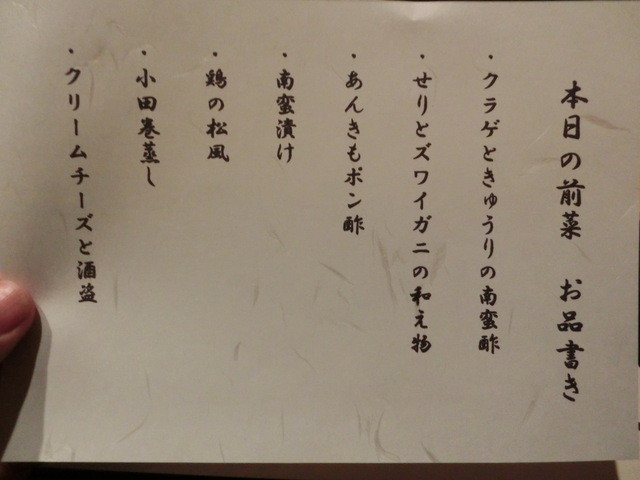 本日の前菜　お品書き
・クラゲときゅうりの南蛮酢
・せりとズワイガニの和え物
・あんきもポン酢
・南蛮漬け
・鶏の松風
・小田巻蒸し
・クリームチーズと酒盗